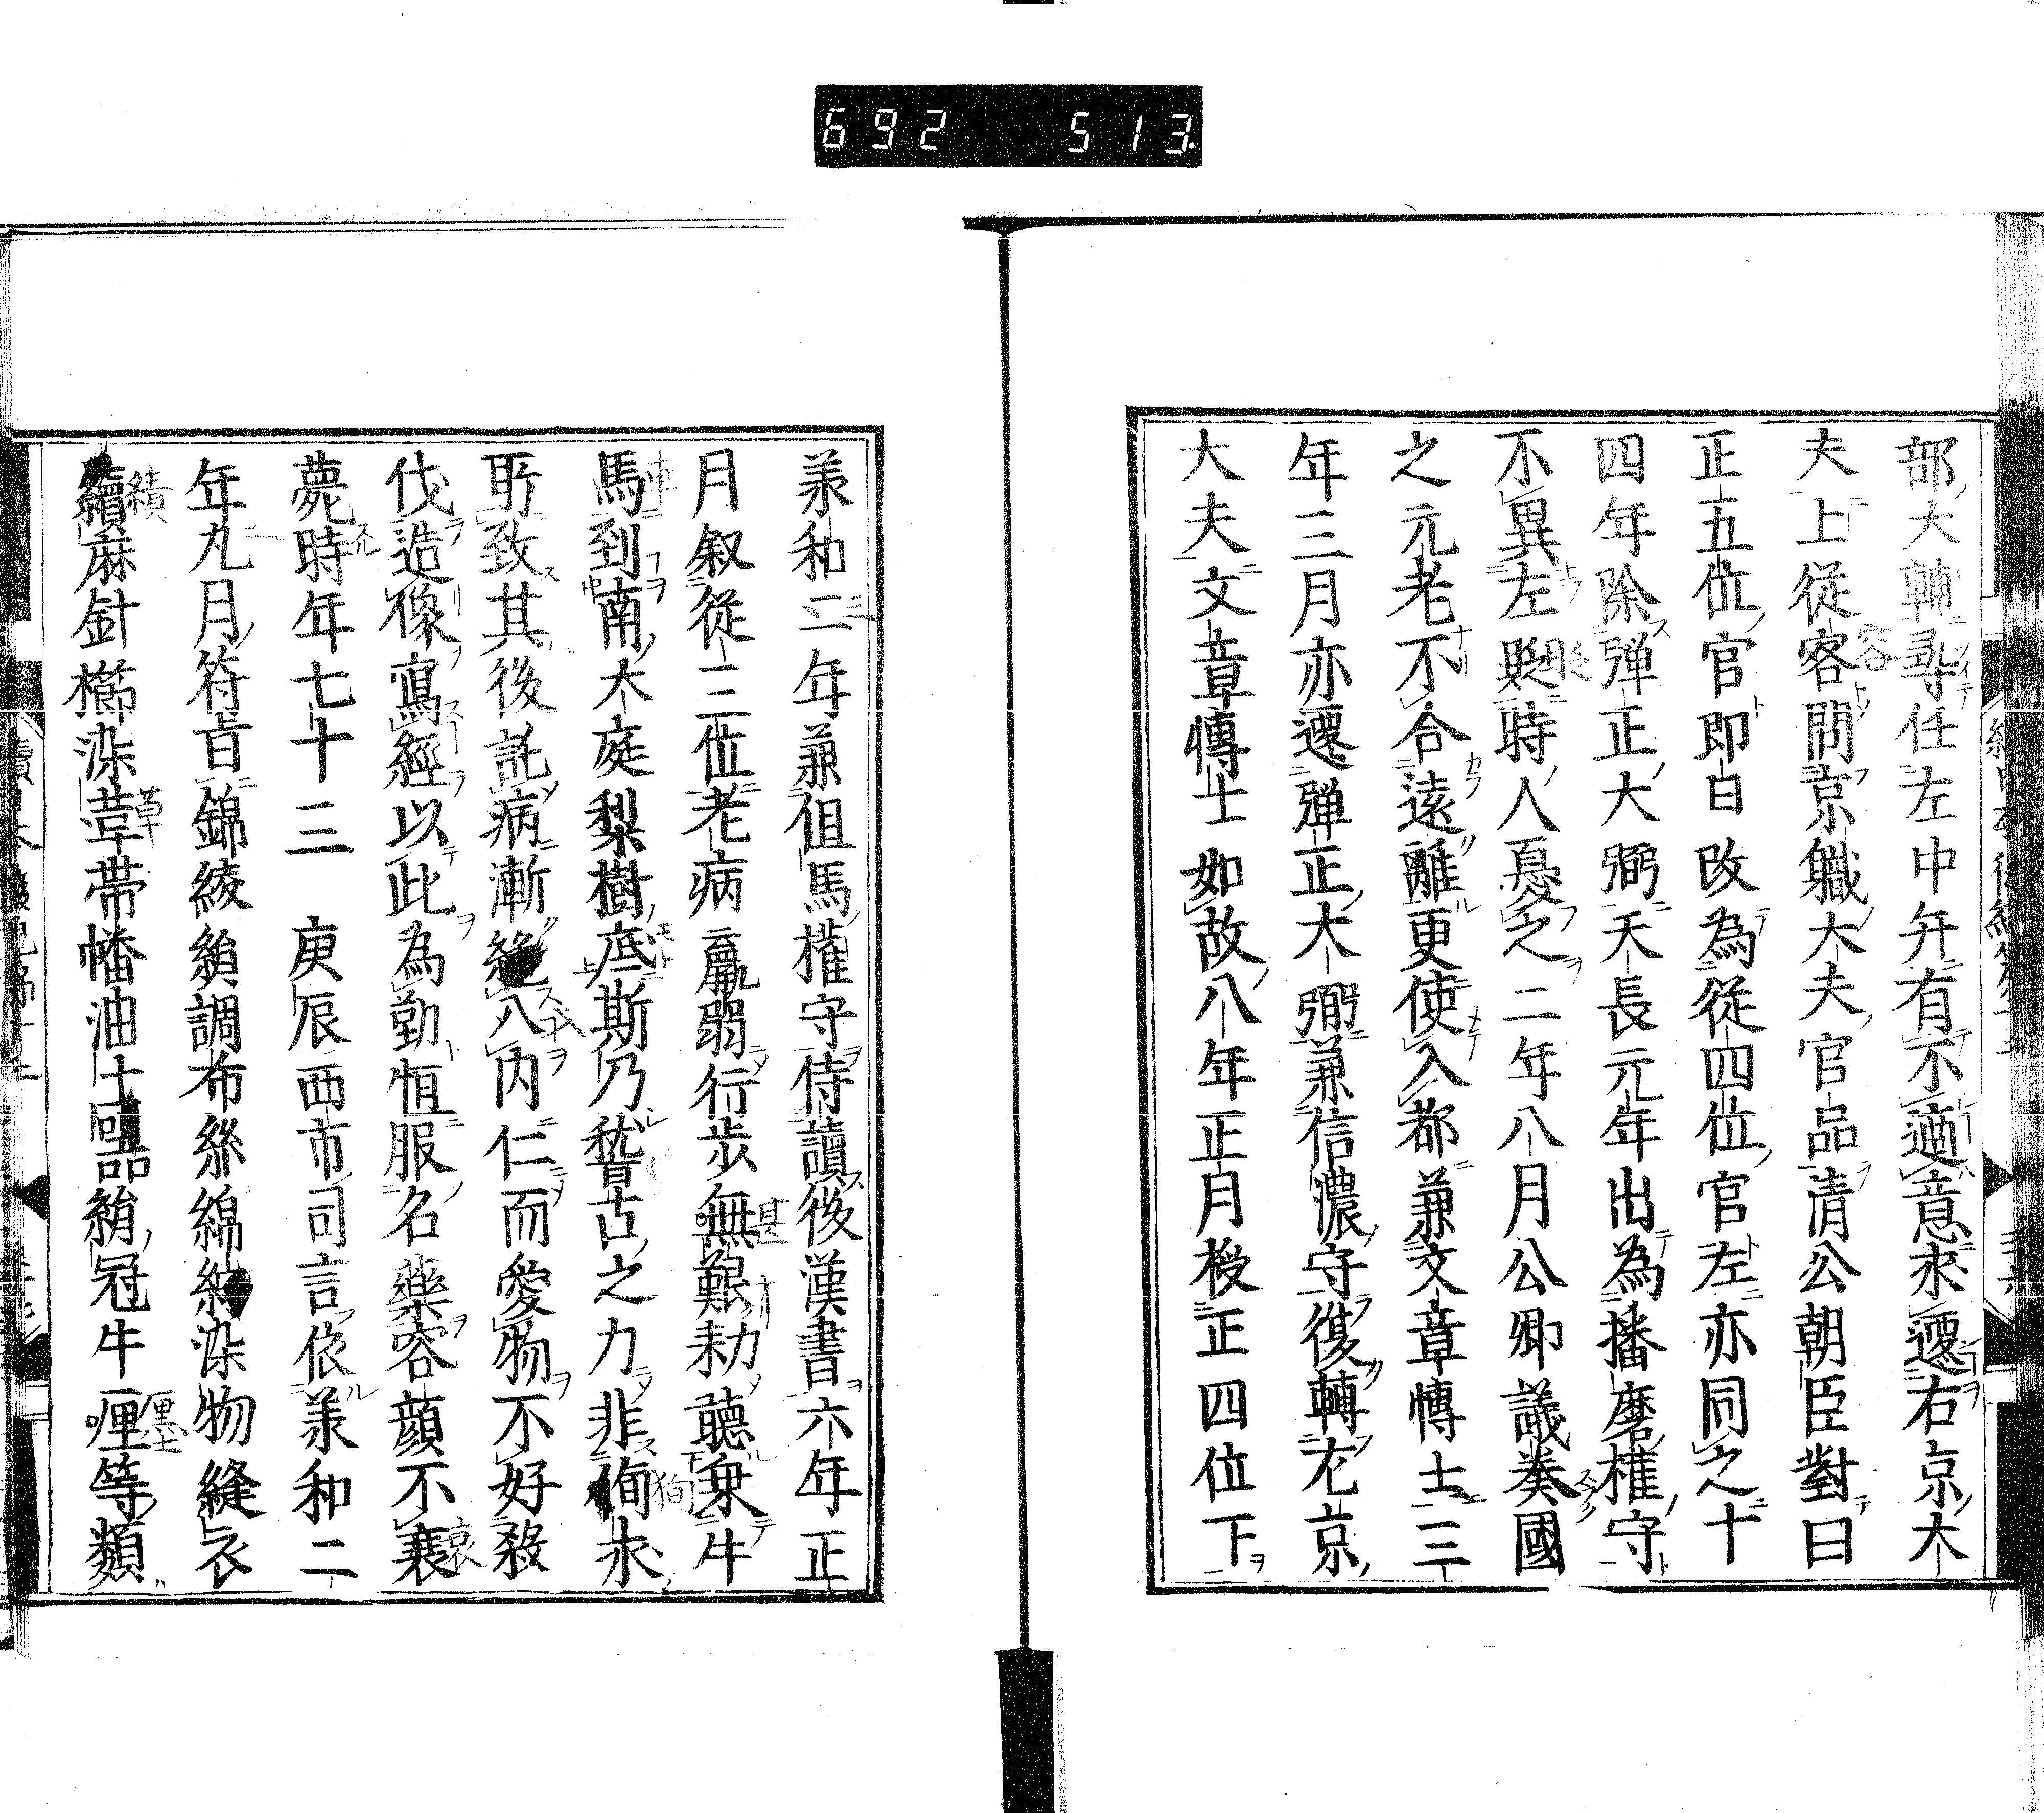 692 513
部大輔尋任左中弁有不適意求遷右京大
夫上從客問京軄大夫官品清公朝臣對曰
正五位官即日改為從四位官左亦同之十
四年除弾正大弼天長元年出為播磨權守
不異左貶時人憂之二年八月公卿議奏國
之元老不合遠離更使入都兼文章博士三
年三月亦遷弾正大弼兼信濃守復轉左京
大夫文章博士如故八年正月授正四位下
承和二年兼但馬權守侍讀後漢書六年正
月叙從三位老病羸弱行歩無艱勑聽乗牛
車
馬到南大庭梨樹底斯乃稽古之力非侚求
所致其後託病漸絶入内仁而愛物不好殺
伐造像寫經以此為勤恒服名藥容顔不衰
薨時年七十三 庚辰西市司言依承和二
年九月符旨錦綾絹調布糸綿染物縫衣
續麻針櫛染韋帶幡油土器絹冠牛厘等類